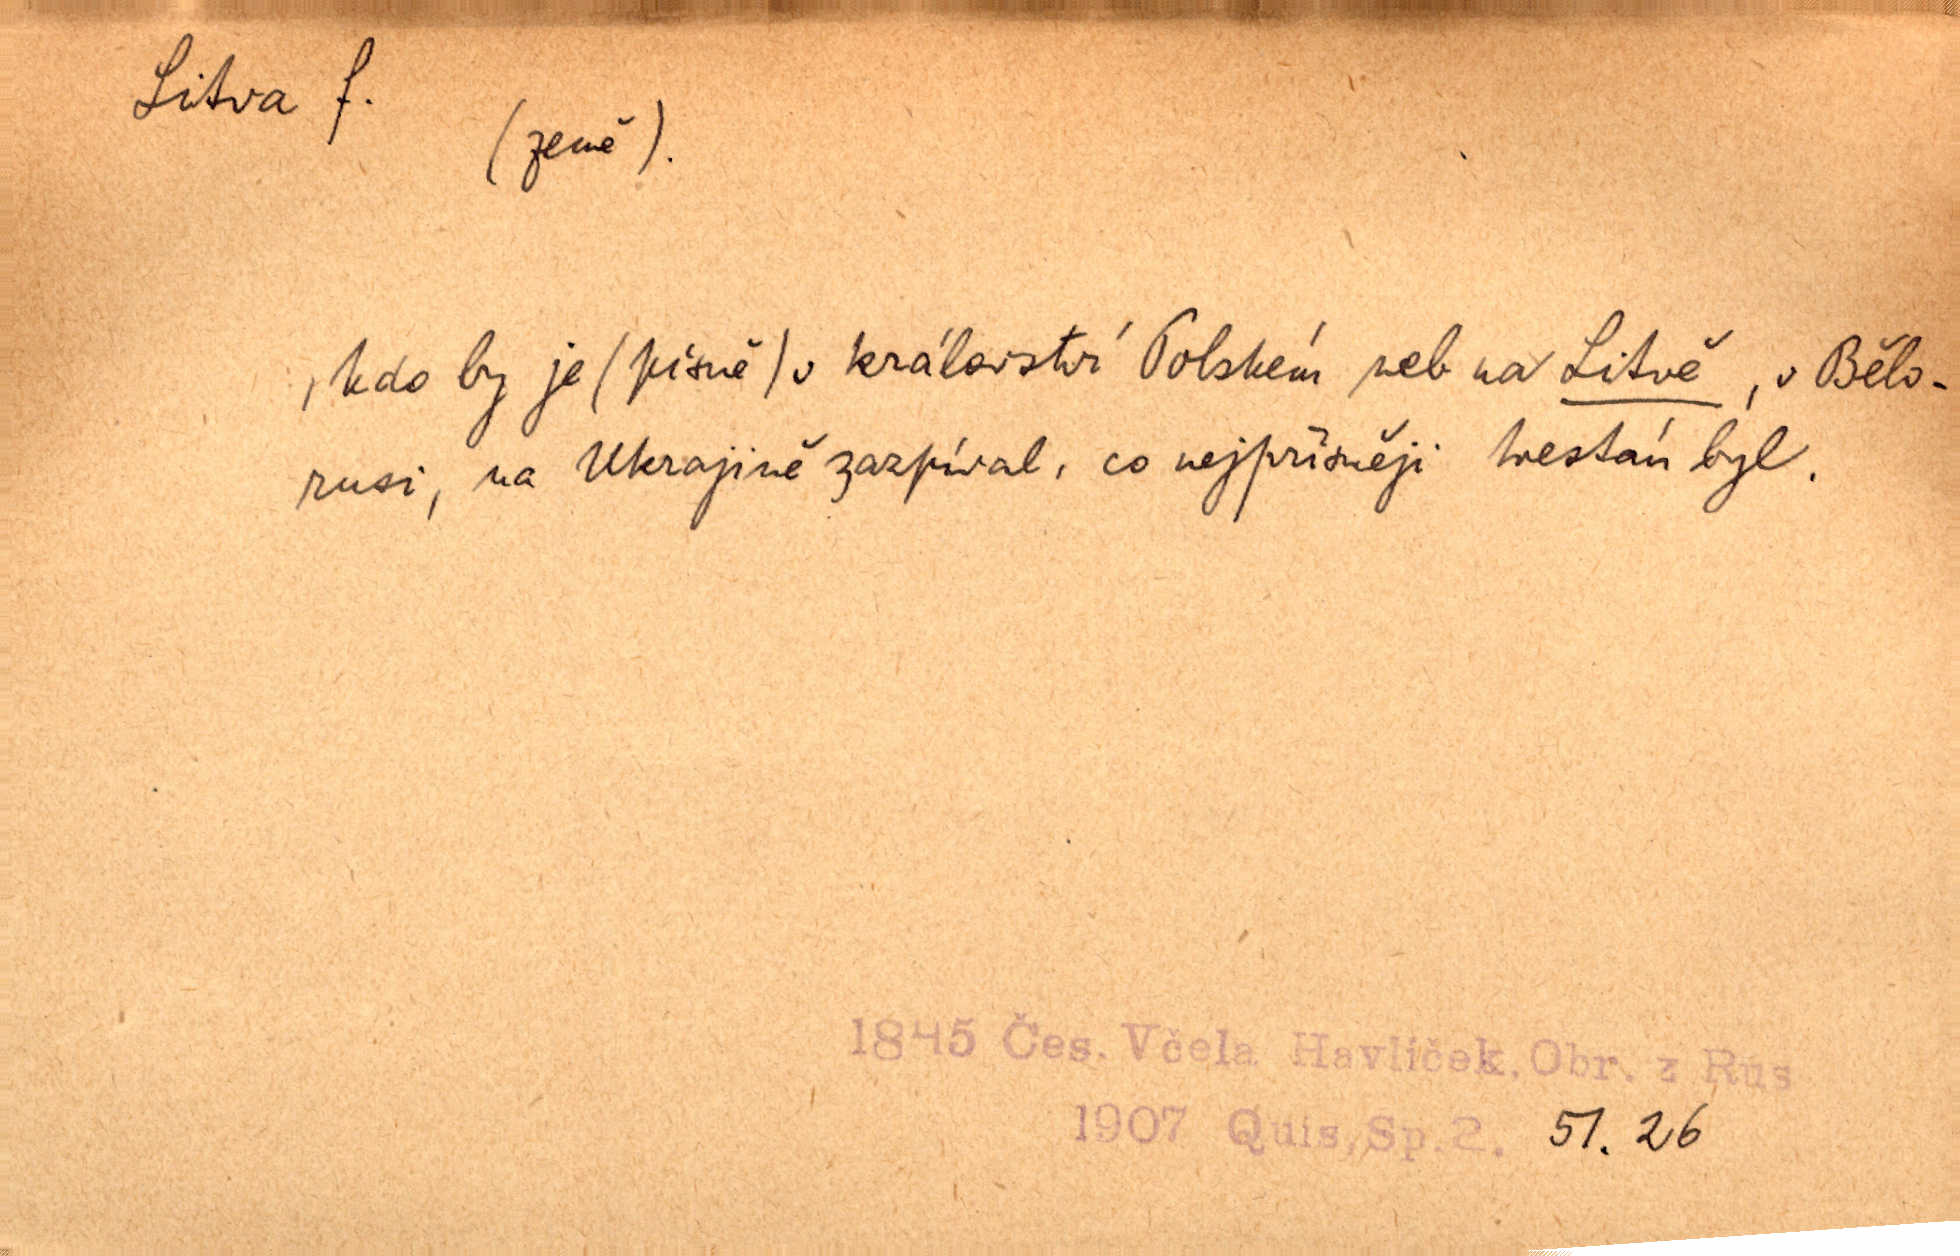 Litva f.
(země).
, kdo by je (písně) v království Polském neb na Litvě, v Bělo-
rusi, na Ukrajině zazpíval, co nejpřísněji trestán byl.
1845 Čes. Včela Havlíček, Obr. z Rus
1907 Quis, Sp. 2. 51. 26